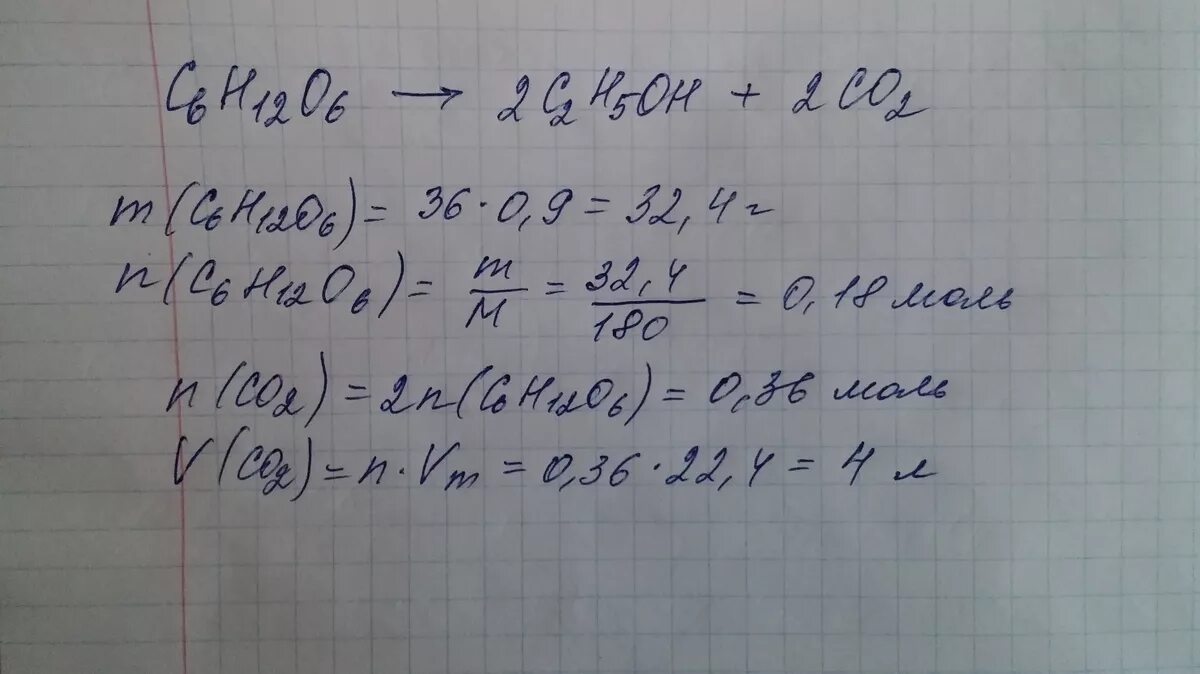 C₆H₁₂O₆ → 2C₂H₅OH + 2CO₂
m(C₆H₁₂O₆) = 36 · 0,9 = 32,4 г
n(C₆H₁₂O₆) = m/M = 32,4/180 = 0,18 моль
n(CO₂) = 2n(C₆H₁₂O₆) = 0,36 моль
V(CO₂) = n · Vm = 0,36 · 22,4 = 4 л